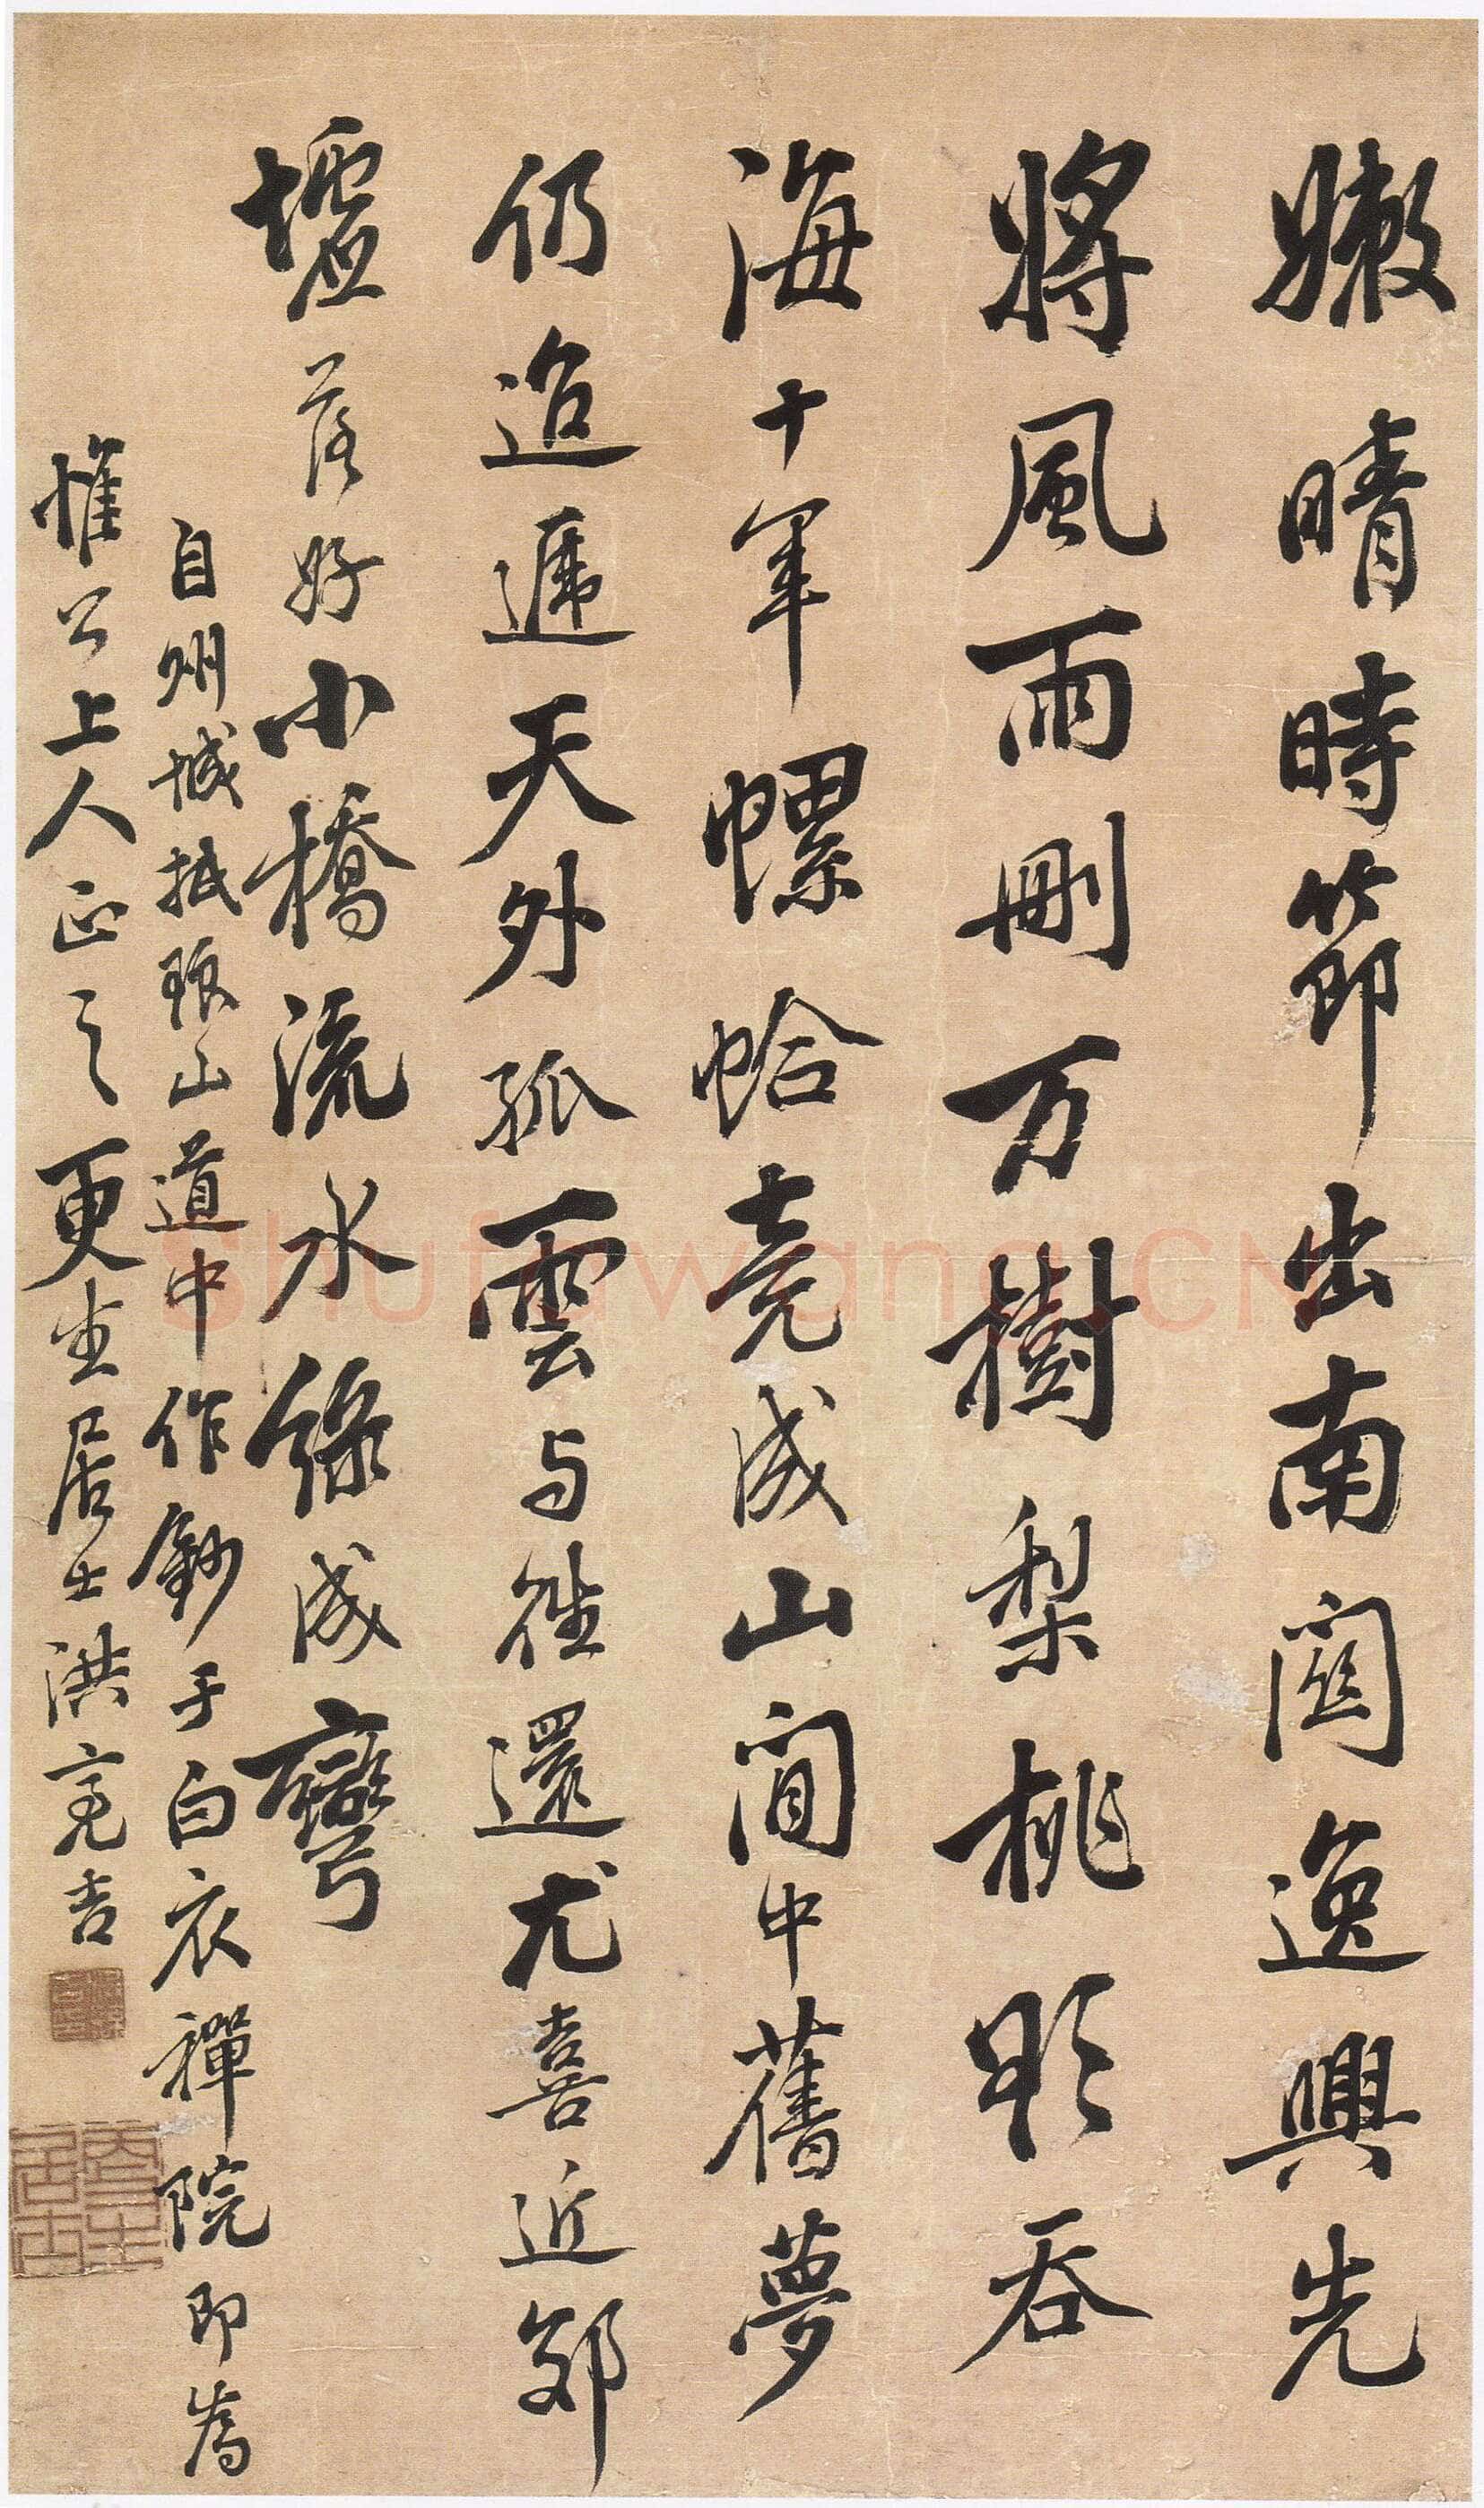 嫩晴時節出南關逸興先
將風雨刪万樹梨桃吞
海十年螺蛤竟成山閒中舊夢
仍迢遞天外孤雲与往還尤喜近郊
墟落好小橋流水綠成彎
自州城抵琅山道中作鈔于白衣禪院即爲
惟公上人正之更生居士洪亮吉
更生居士
Shufawang.CN